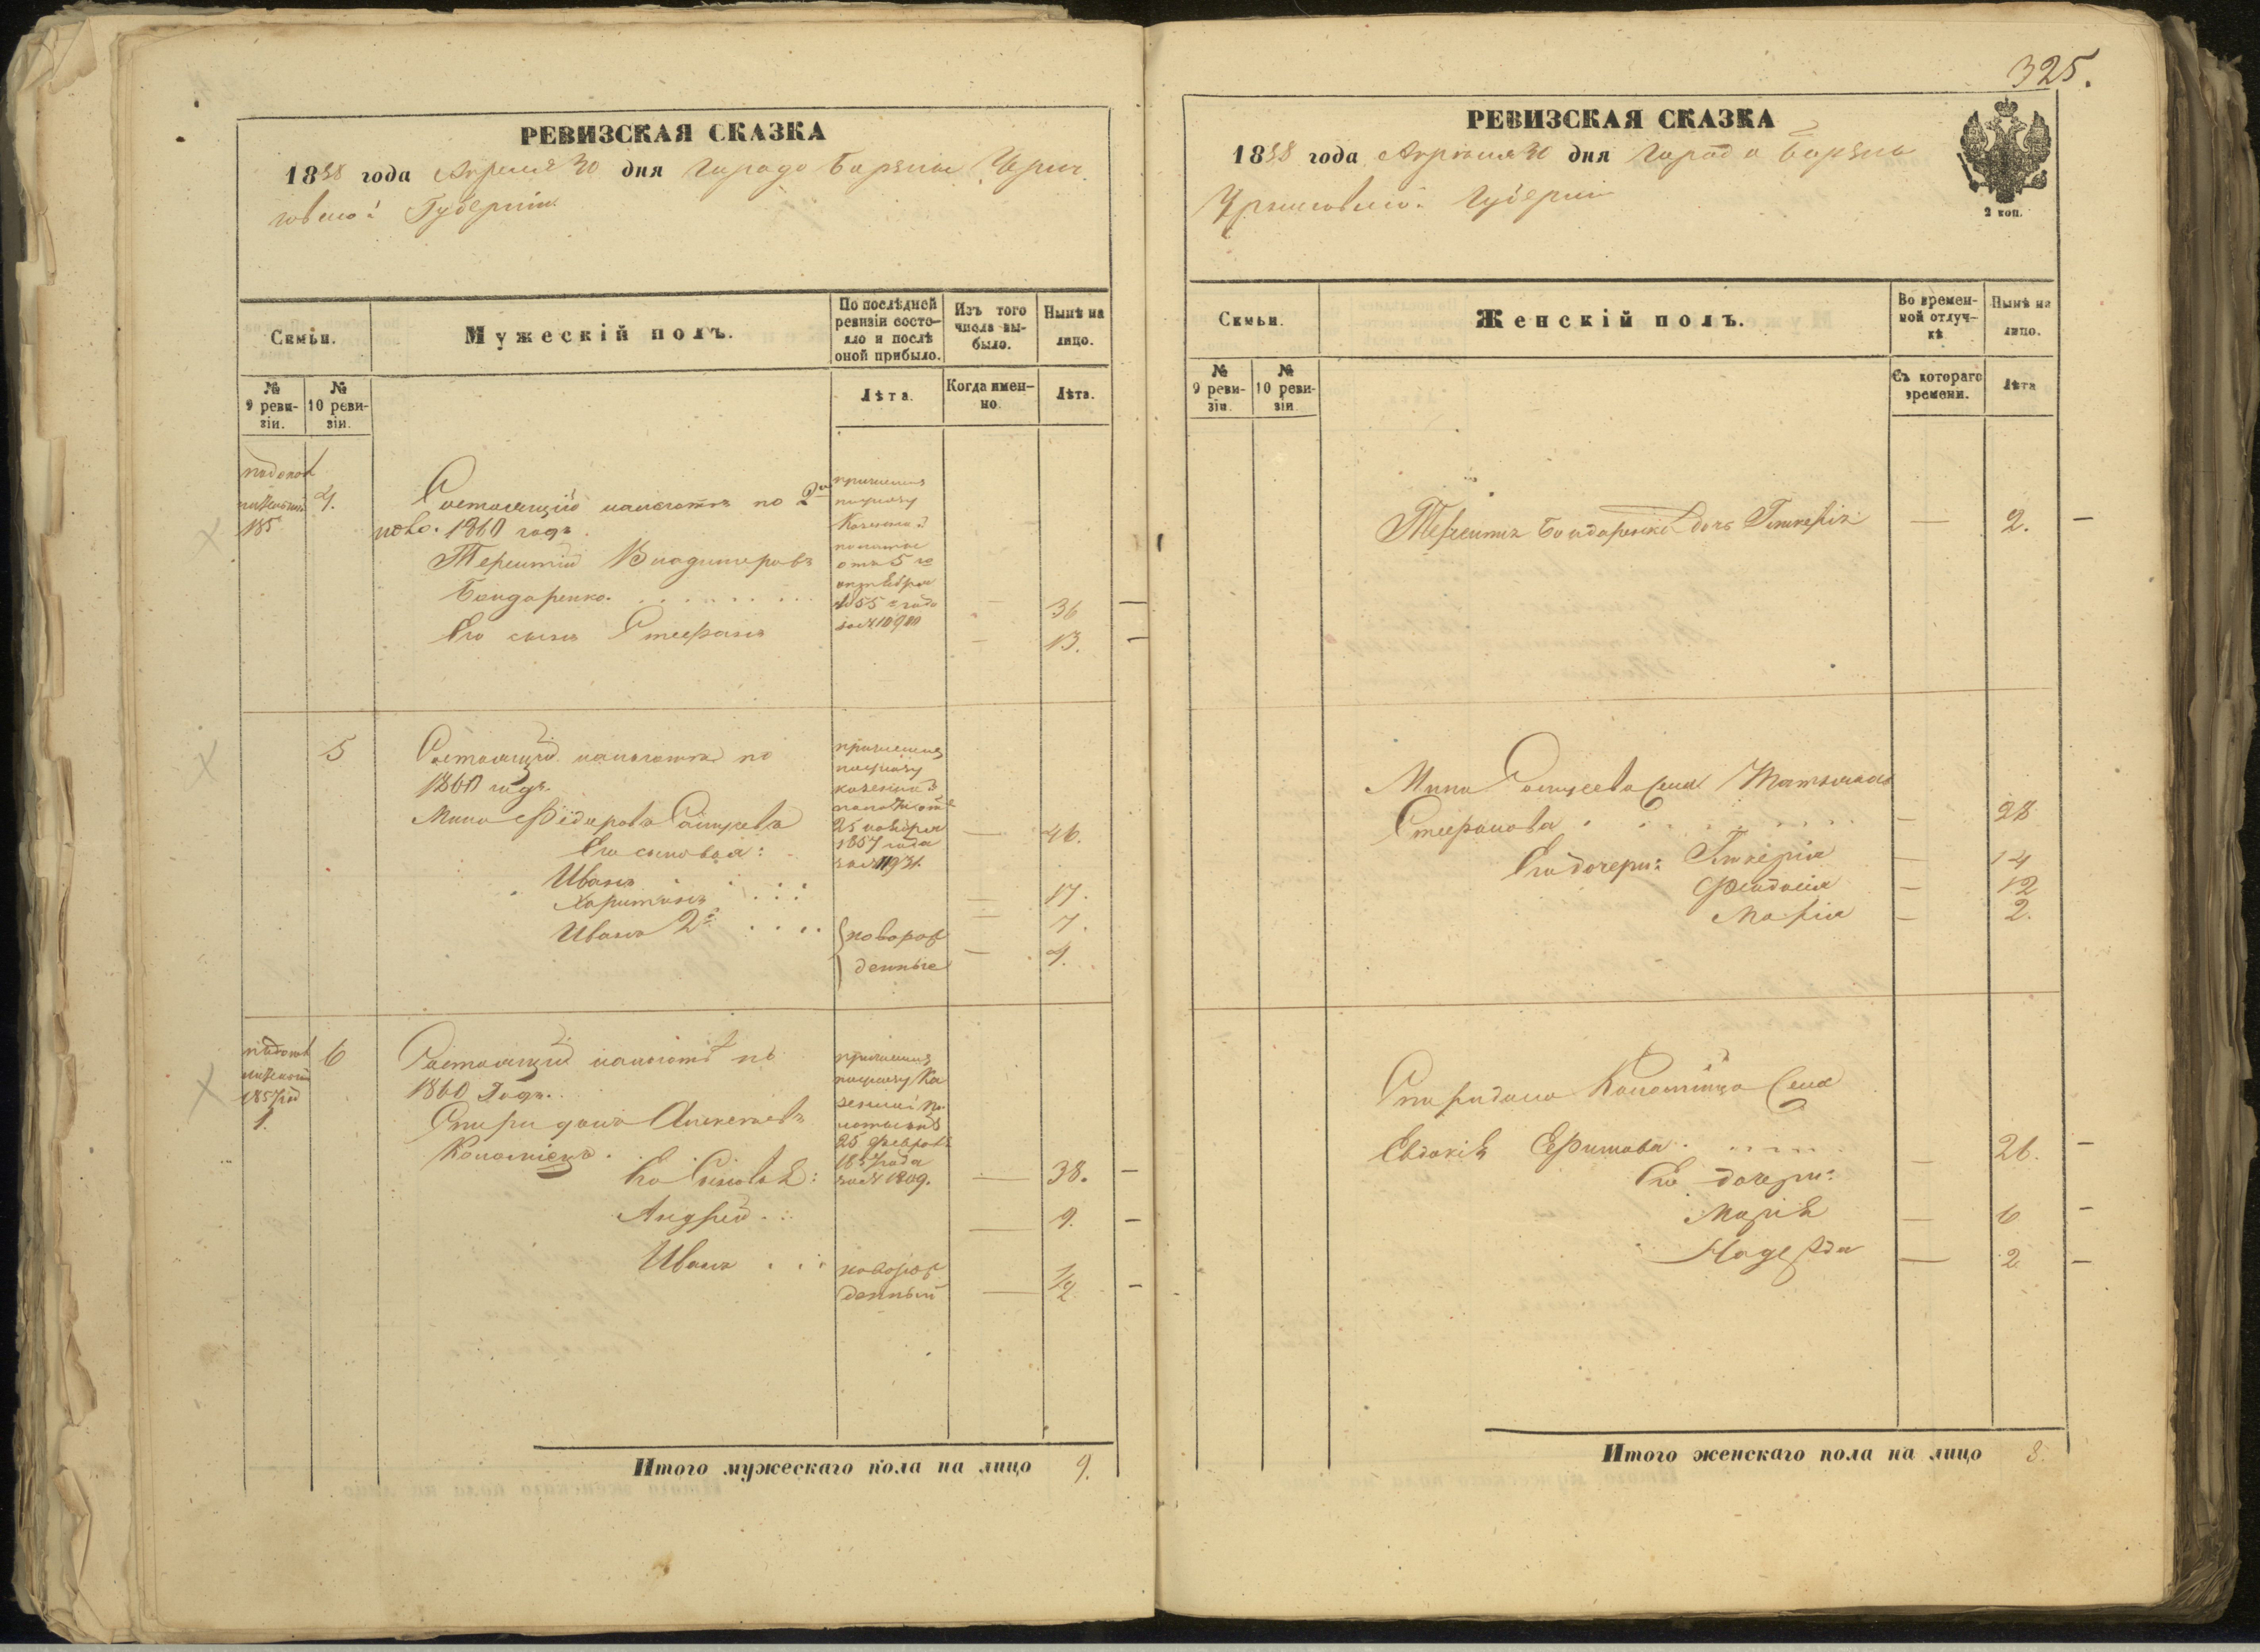 РЕВИЗСКАЯ СКАЗКА
1858 года Апреля 30 дня Города Борзны Черни
говской Губернии
Семьи.
Мужескій полъ.
По послѣдней ревизіи состояло и послѣ оной прибыло.
Изъ того числа выбыло.
Нынѣ на лицо.
№ 9 ревизіи.
№ 10 ревизіи.
Лѣта.
Когда именно.
Лѣта.
4.
Состоящій на льготѣ по 2ю
полов. 1860 года.
Терентій Владимировъ
Бондаренко.
36
Его сынъ Стефанъ
13.
причисленъ
по указу
Казенной
палаты
отъ 5 го
октября
1855 года
5
Состоящій на льготѣ по
1860 годъ.
Мина Федоровъ
46.
Его сыновья:
Иванъ
17.
Харитонъ
7.
Иванъ 2й
4.
причисленъ
по указу
казенной
палаты отъ
25 ноября
1857 года
новорож
денные
6
Состоящій на льготѣ по
1860 Годъ.
Спиридонъ Алексѣевъ
Коломіецъ.
38.
Его Сыновья:
Андрей
9.
Иванъ
1/2
причисленъ
по указу Ка
зенной Па
латы отъ
25 февраля
1857 года
за № 1809.
новорож
денный
Итого мужескаго пола на лицо 9.
325.
РЕВИЗСКАЯ СКАЗКА
1858 года Апреля 30 дня Города Борзны
Черниговской Губернии
2 коп.
Семьи.
Женскій полъ.
Во временной отлучкѣ
Нынѣ на лицо.
№ 9 ревизіи.
№ 10 ревизіи
Съ котораго времени.
Лѣта
Терентія Бондаренка дочь Гликерія
2.
Мины жена Татьяна
Стефанова
28
Его дочери: Гликерія
14
Феодосія
12
Марія
2.
Спиридона Коломійца жена
Евдокія Ефимова
26.
Его дочери:
Марія
6
Надежда
2
Итого женскаго пола на лицо 8.